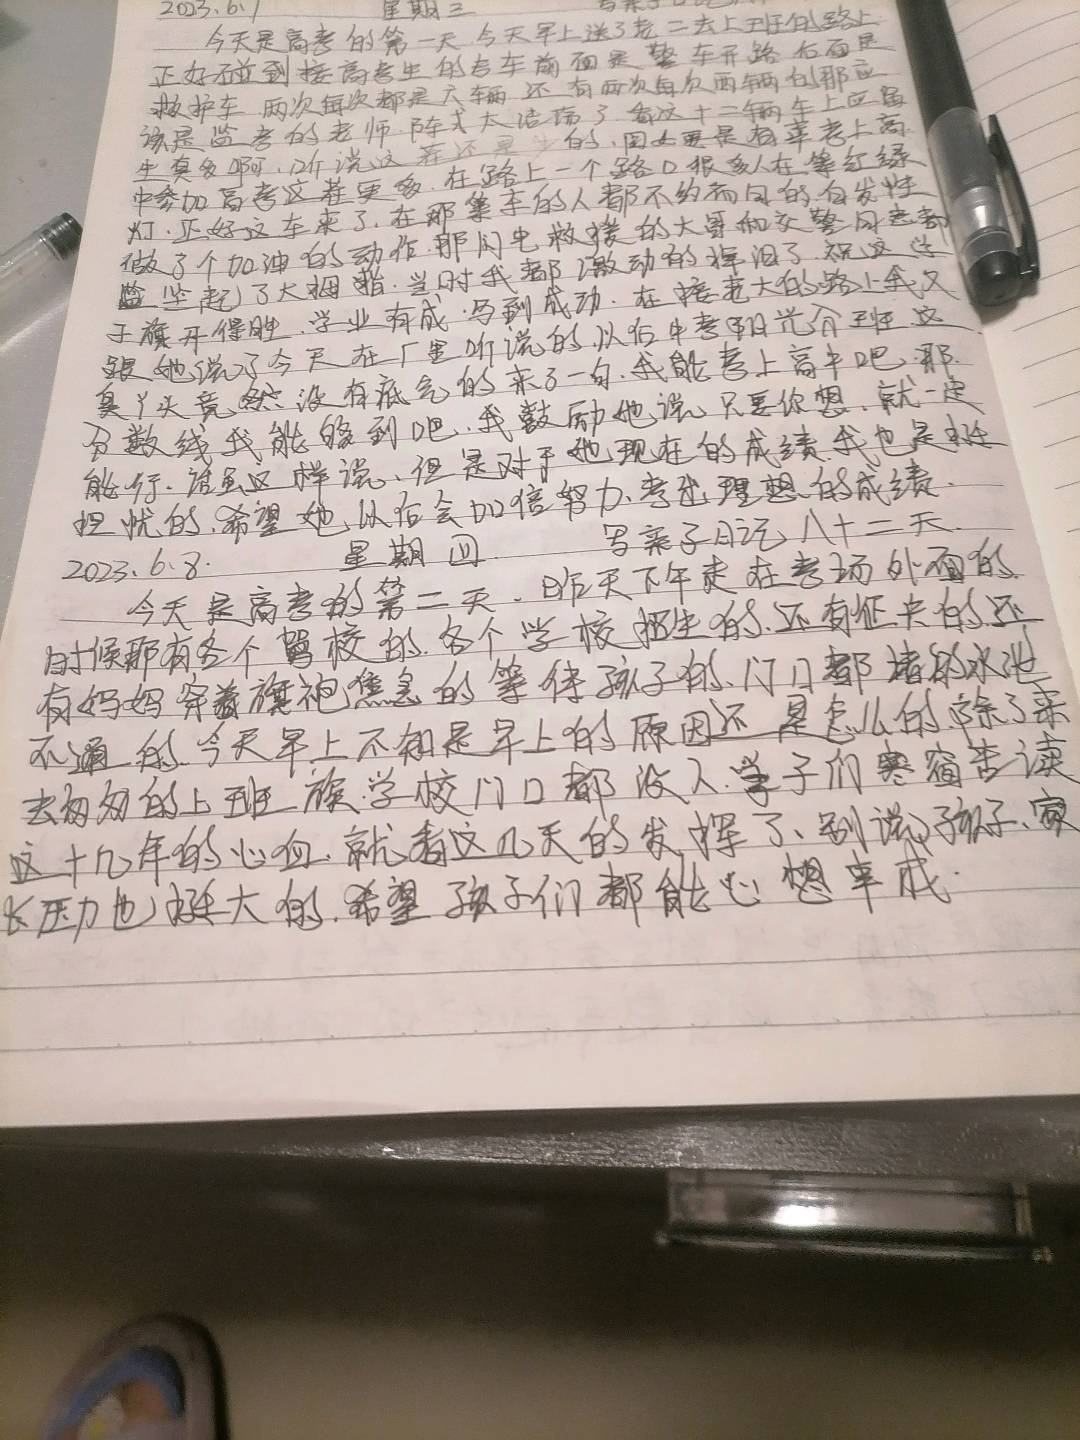 2023.6.7 星期三 写亲子日记
今天是高考的第一天.今天早上送了老二去上班的路上
正好碰到接高考生的专车前面是警车开路后面是
救护车 两次每次都是六辆还有两次每次两辆的那应
该是监考的老师.阵式太浩荡了.看这十二辆车上应
生真多啊.听说这届还是 的.
中参加高考这届更多.在路上一个路口很多人在等红绿
灯.正好这车来了.在那等车的人都不约而同的自发性
做了个加油的动作.那闪电救援的大哥和交警同志都
竖起了大拇指.当时我都激动的挥泪了.祝这些学
子旗开得胜.学业有成.马到成功.在接老大的路上我又
跟她说了今天在厂里听说的以后中考 分班这
臭丫头竟然没有底气的来了一句.我能考上高中吧.那
分数线我能够到吧.我鼓励她说只要你想.就一定
能行.谁虽这样说.但是对于她现在的成绩我也是挺
担忧的.希望她以后会加倍努力.考出理想的成绩.
2023.6.8. 星期四. 写亲子日记八十二天.
今天是高考的第二天.昨天下午走在考场外面的
时候那有各个驾校的.各个学校招生的.还有征 的.还
有妈妈穿着旗袍焦急的等待孩子的.门口都堵的水泄
不通的.今天早上不知是早上的原因还是怎么的.除了来
去匆匆的上班族.学校门口都没人.学子们寒窗苦读
这十几年的心血.就看这几天的发挥了.别说孩子.家
长压力也挺大的.希望孩子们都能心想事成.